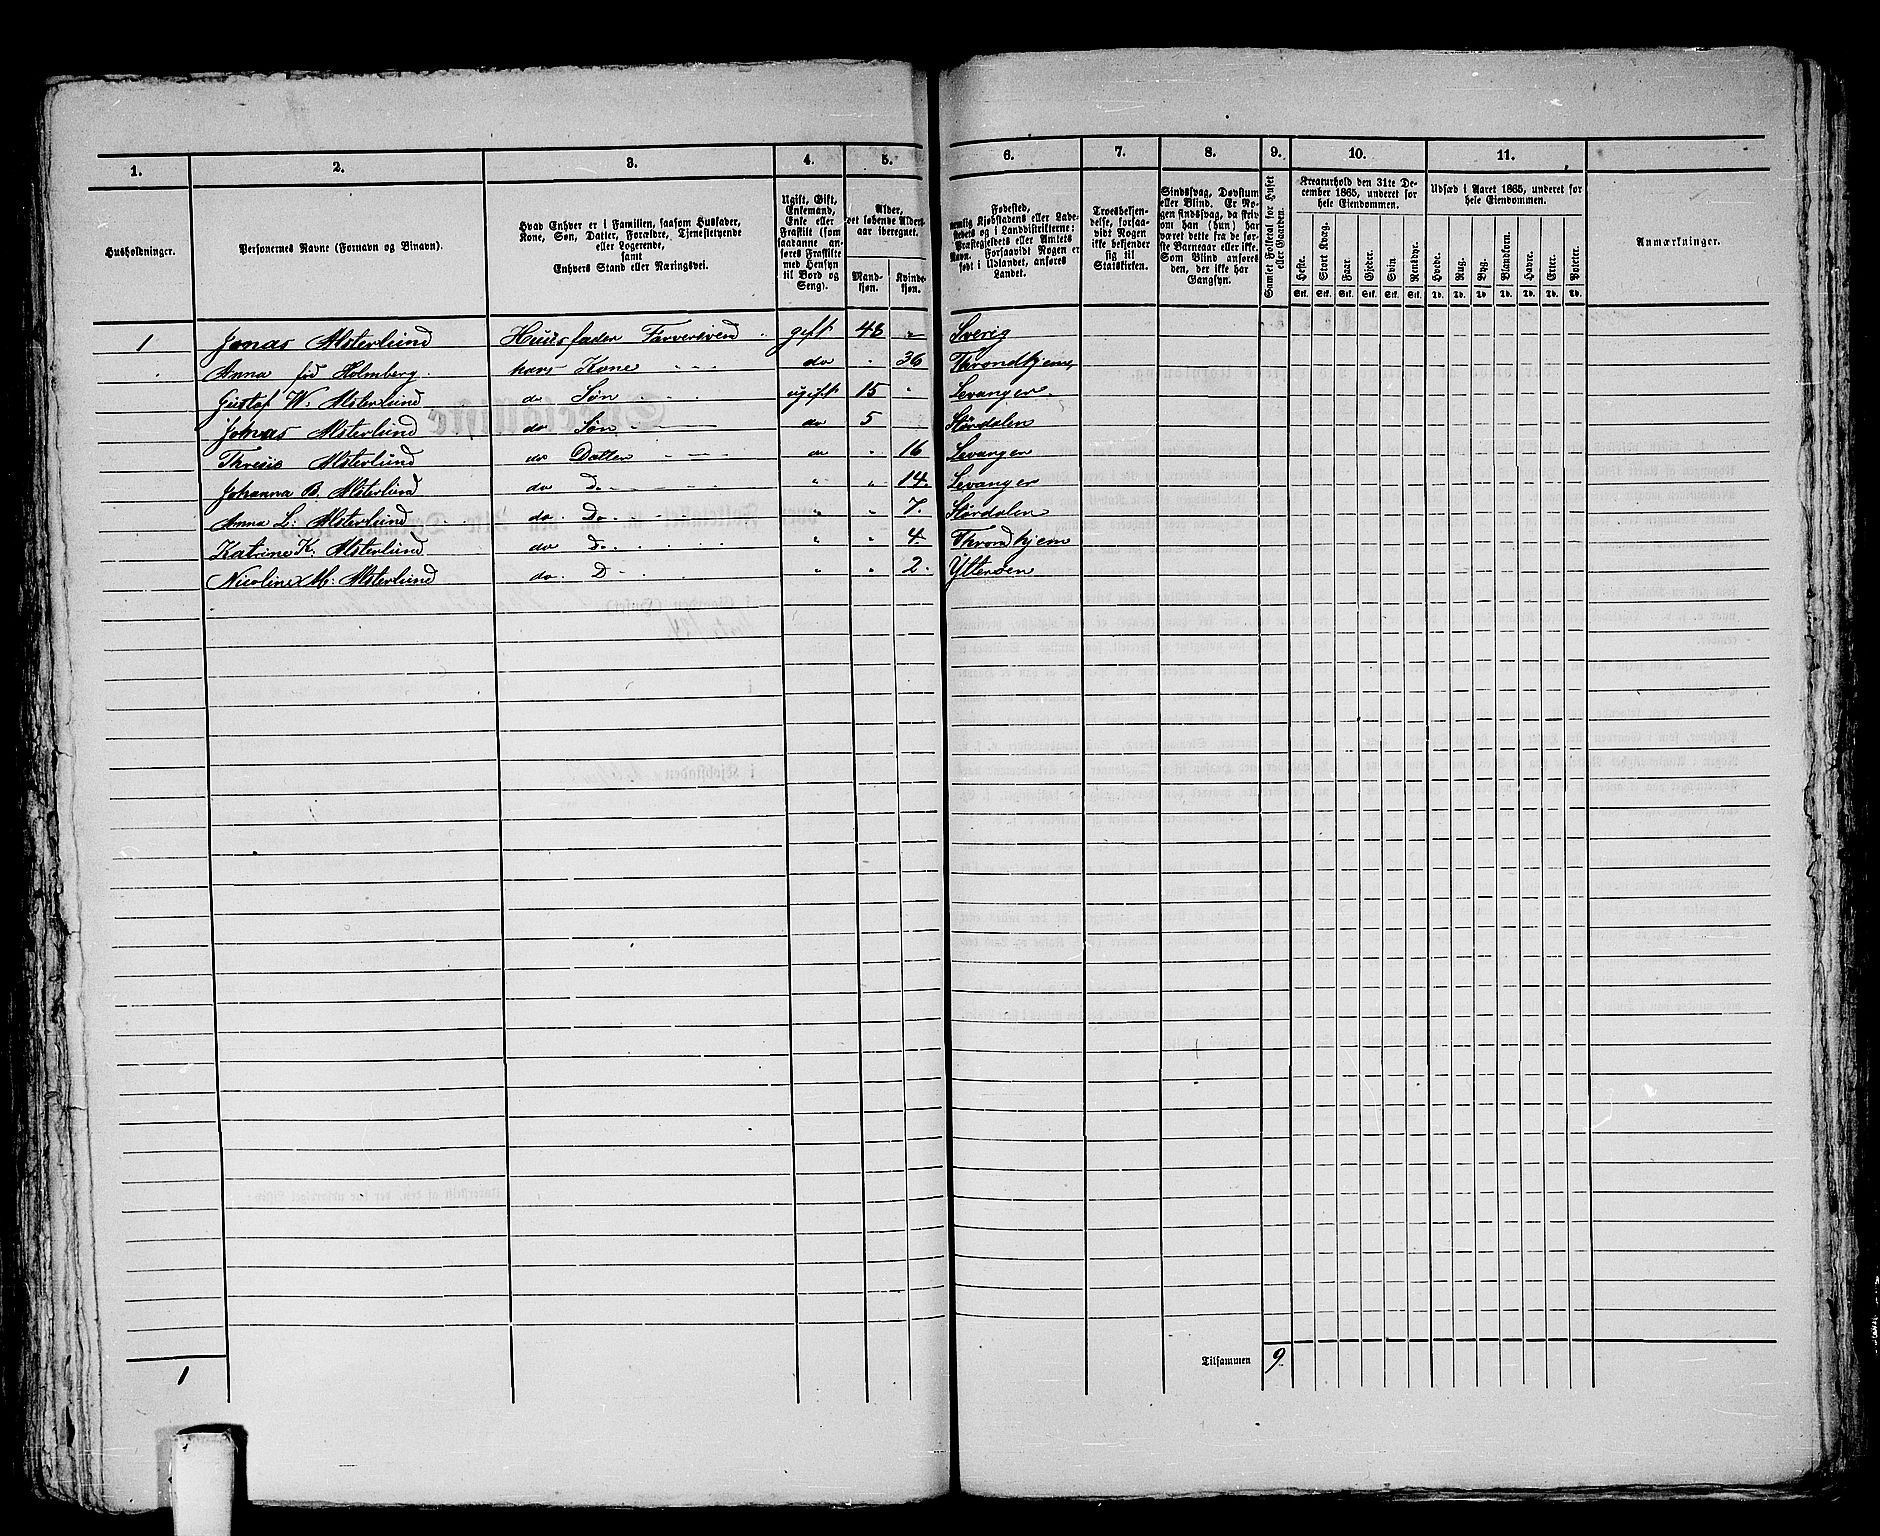 1. 2. 3. 4. 5. 6. 7. 8. 9. 10. 11.
Husholdninger.
Personernes Navne (Fornavn og Binavn).
Hvad Enhver er i Familien, saasom Husfader,
Kone, Søn, Datter, Forældre, Tjenestetyende
eller Logerende,
samt
Enhvers Stand eller Næringsvei.
Ugift, Gift,
Enkemand,
Enke eller
Fraskilt (som
saadanne an-
føres Fraskilte
med Hensyn
til Bord og
Seng).
Alder,
det løbende Alders-
aar iberegnet.
Mand-
kjøn.
Kvinde-
kjøn.
Fødested,
nemlig Kjøbstadens eller Lade-
stedets og i Landdistrikterne:
Præstegjeldets eller Amtets
Navn. Forsaavidt Nogen er
født i Udlandet, anføres
Landet.
Troesbekjen-
delse, forsaa-
vidt Nogen
ikke bekjender
sig til
Statskirken.
Sindssvag, Døvstum
eller Blind. Er No-
gen sindssvag, da skriv
om han (hun) har
været dette fra de før-
ste Barneaar eller ikke.
Som Blind anføres
den, der ikke har
Gangsyn.
Samlet Folketal for Huset
eller Gaarden.
Kreaturhold den 31te De-
cember 1865, underet for
hele Eiendommen.
Heste. Stort Kvæg. Faar. Gjeder. Svin. Rensdyr.
Stk. Stk. Stk. Stk. Stk. Stk.
Udsæd i Aaret 1865, underet for
hele Eiendommen.
Hvede. Rug. Byg. Blandkorn. Havre. Erter. Poteter.
Td. Td. Td. Td. Td. Td. Td.
Anmærkninger.
1 Jonas Alsterlund Huusfader Farversvend gift 48 " Sverig
Anna fød Holmberg. hans Kone do " 36 Throndhjem
Gustaf W. Alsterlund do Søn ugift 15 " Levanger
Johnas Alsterlund do Søn do 5 Størdalen
Thresie Alsterlund do Datter do " 16 Levanger
Johanna B. Alsterlund do D. " " 14. Levanger
Anna L. Alsterlund do. Do. " " 7. Størdalen
Katrine K. Alsterlund do D. " " 4. Throndhjem
Nicoline M. Alsterlund do. D " " 2. Ytterøen
Tilsammen 9.
1